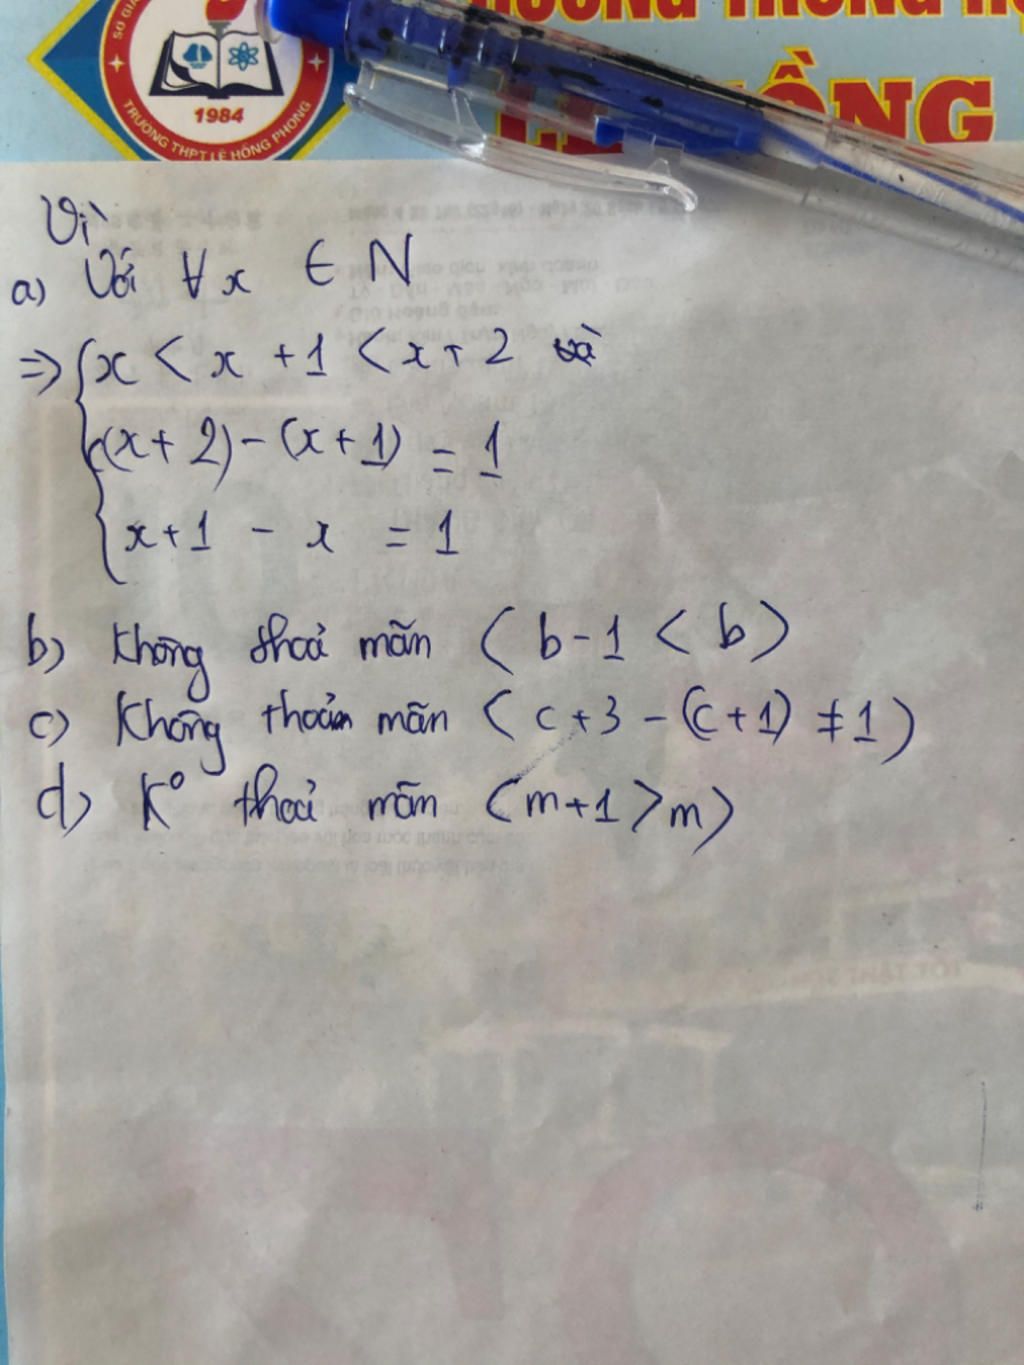 TRƯỜNG TRUNG H
LÊ HỒNG
SỞ GIÁ
1984
TRƯỜNG THPT LÊ HỒNG PHONG
Vì
a) Với ∀x ∈ N
=> { x < x + 1 < x + 2 và
(x + 2) - (x + 1) = 1
x + 1 - x = 1
b) Không thoả mãn (b - 1 < b)
c) Không thoả mãn (c + 3 - (c + 1) ≠ 1)
d) K° thoả mãn (m + 1 > m)